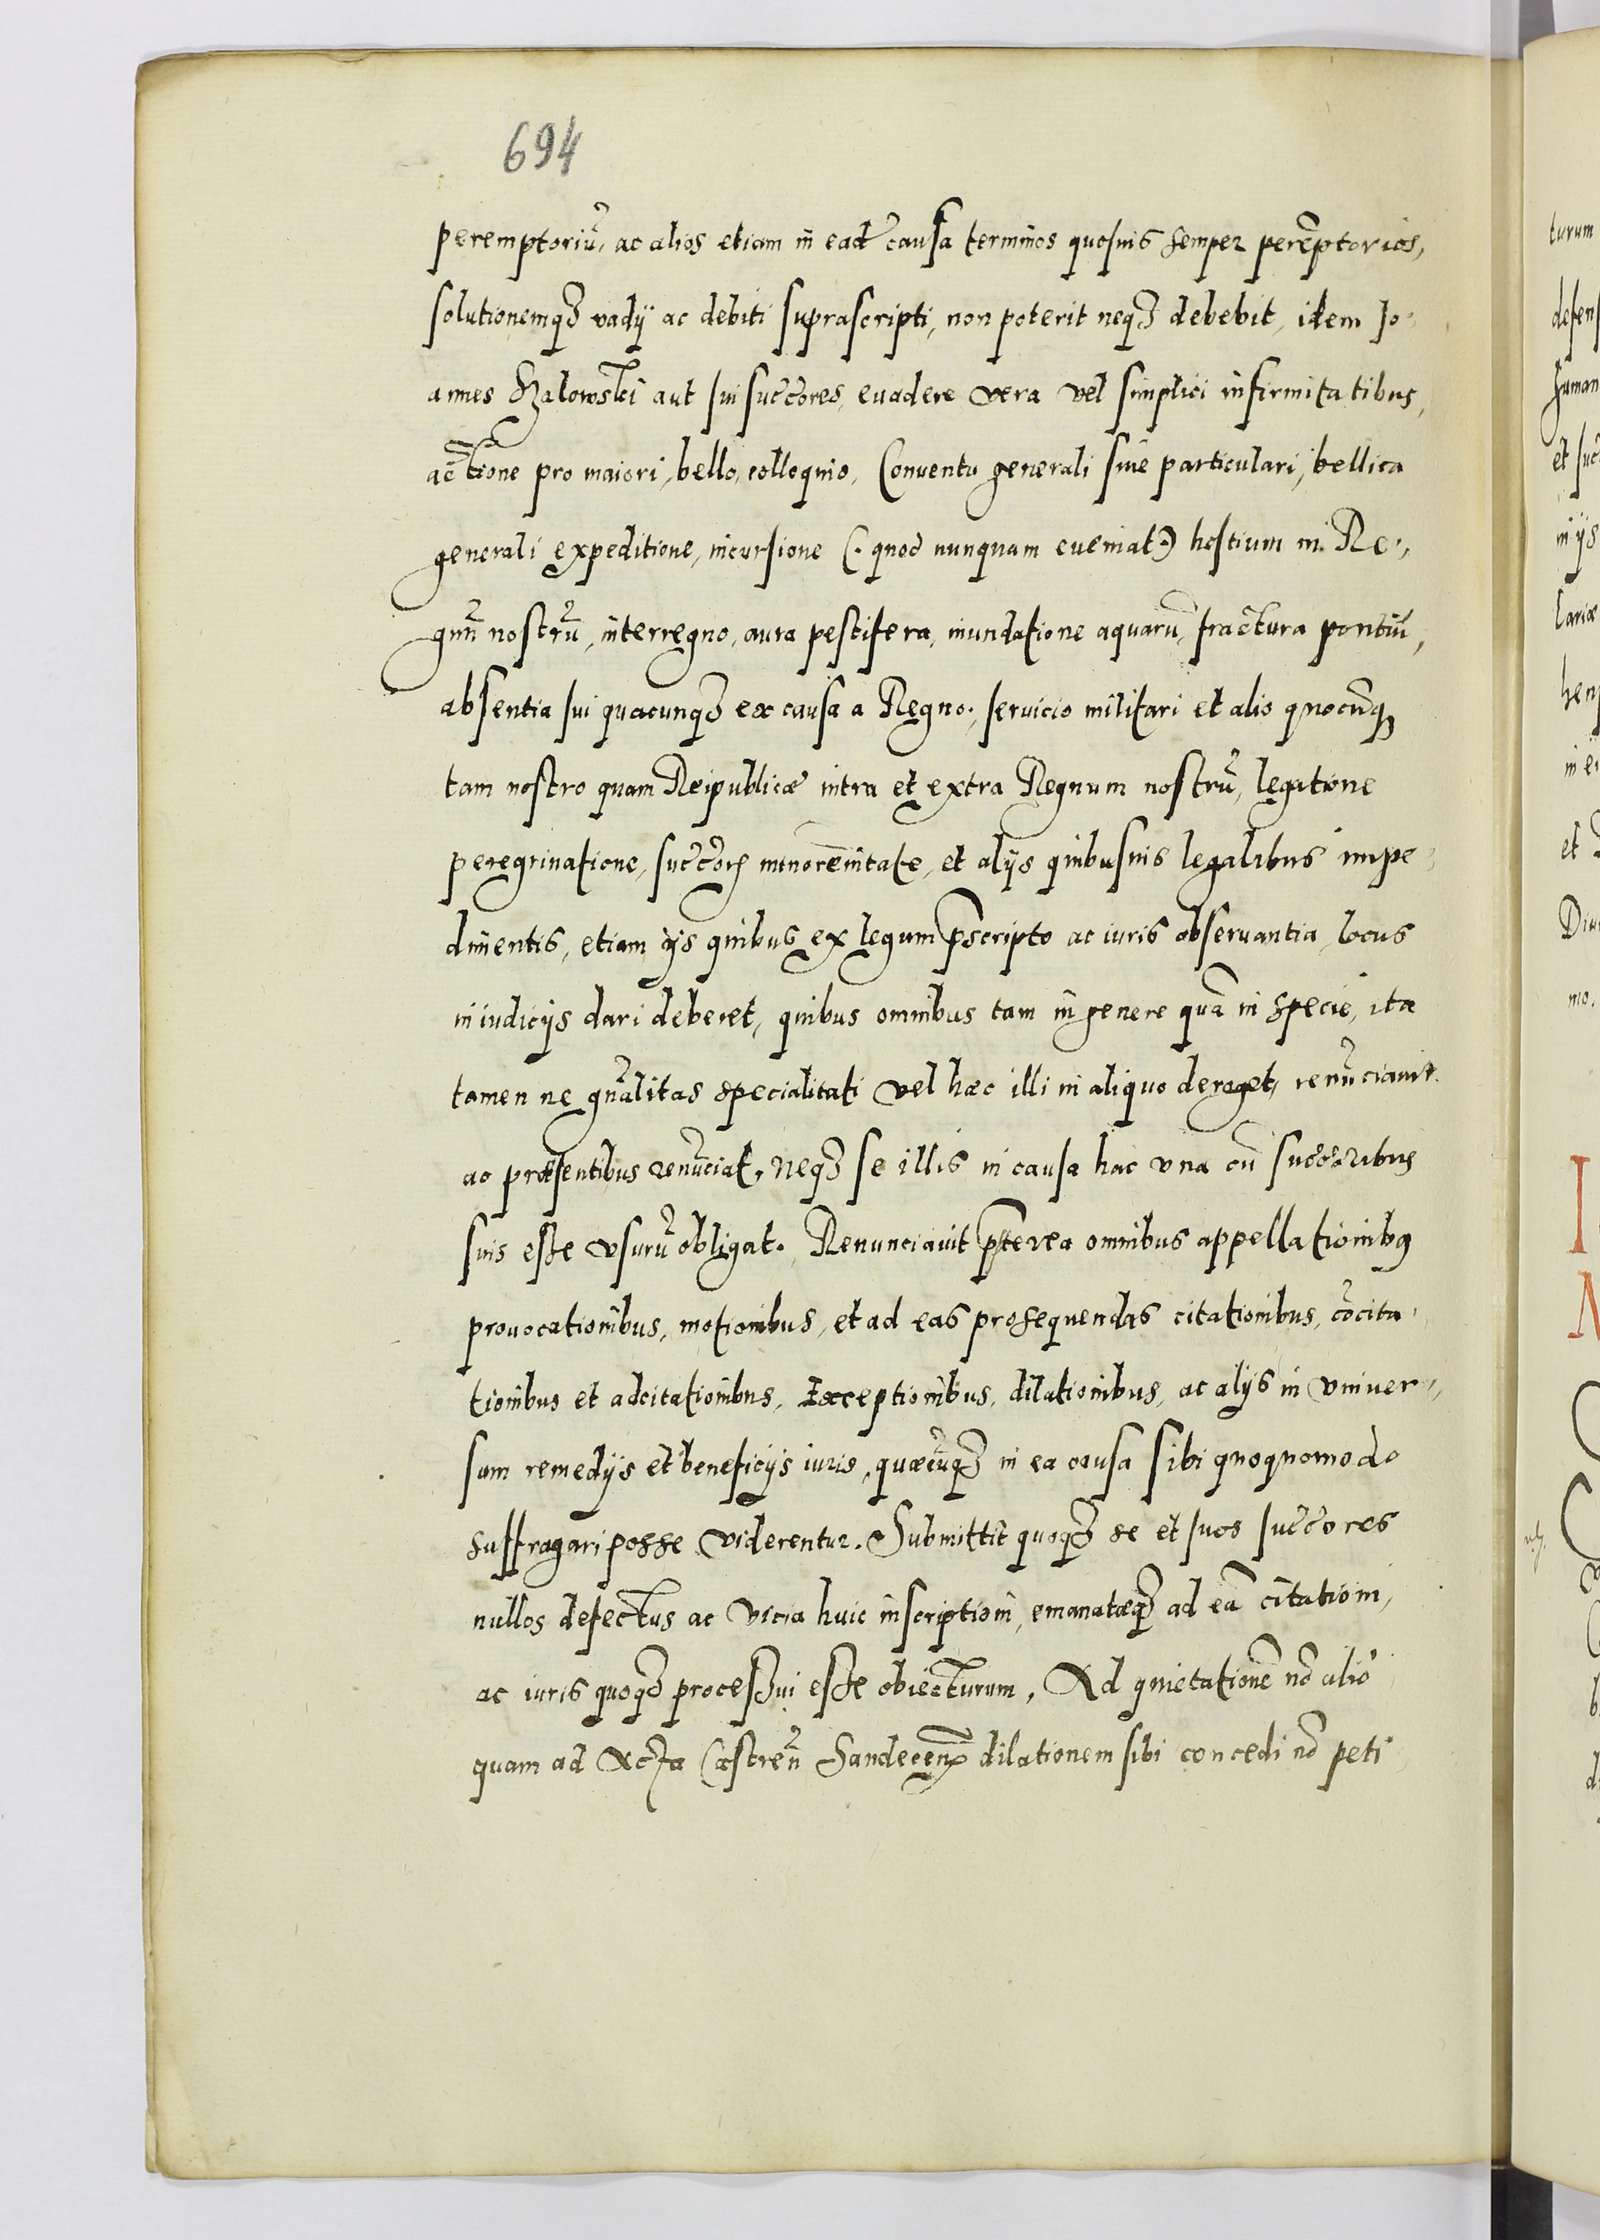 694
peremptoriũ, ac alios etiam in ead̃ causa terminos quosuis semper perẽptorios,
solutionemq3 vadij ac debiti suprascripti, non poterit neq3 debebit, idem Jo-
annes Szalowski aut sui succ̃ores, euadere vera vel simplici infirmitatibus,
actione pro maiori, bello, colloquio, Conuentu generali siue particulari, bellica
generali expeditione, incursione (. quod nunquam eueniat.) hostium in Re-
gnũ nostrũ, interregno, aura pestifera, inundatione aquarũ, fractura pontiũ,
absentia sui quacunq3 ex causa a Regno, seruicio militari et alio quocũq3
tam nostro quam Reipublicæ intra et extra Regnum nostrũ, legatione
peregrinatione, succ̃orũ minorẽnitate, et alijs quibusuis legalibus impe-
dimentis, etiam ijs quibus ex legum p̃scripto ac iuris obseruantia, locus
in iudicijs dari deberet, quibus omnibus tam in genere quã in specie, ita
tamen ne gñalitas specialitati vel hæc illi in aliquo deroget, renũciauit
ac præsentibus renũciat, neq3 se illis in causa hac vna cũ succ̃oribus
suis esse vsurũ obligat. Renunciauit p̃terea omnibus appellationibus
prouocationibus, motionibus, et ad eas prosequendas citationibus, cõcita-
tionibus et adcitationibus, Exceptionibus, dilationibus, ac alijs in vniuer-
sum remedijs et beneficijs iuris, quæcũq3 in ea causa sibi quoquomodo
suffragari posse viderentur. Submittit quoq3 se et suos succ̃ores
nullos defectus ac vicia huic inscriptioni, emanatæq3 ad eã citationi,
ac iuris quoq3 processui esse obiecturum. Ad quietationẽ nõ alio
quam ad Acta Castreñ Sandeceñ dilationem sibi concedi nõ peti
turum
defens
human
et succ
in ijs
lariæ
in ei
et
mo.
I